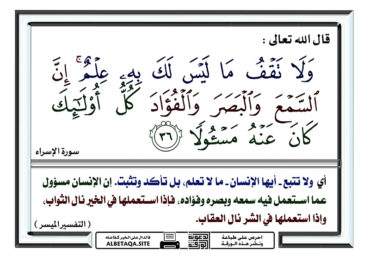 قال الله تعالى :
وَلَا تَقْفُ مَا لَيْسَ لَكَ بِهِۦ عِلْمٌ ۚ إِنَّ
ٱلسَّمْعَ وَٱلْبَصَرَ وَٱلْفُؤَادَ كُلُّ أُو۟لَٰٓئِكَ
كَانَ عَنْهُ مَسْـُٔولًا ٣٦
سورة الإسراء
أي ولا تتبع ـ أيها الإنسان ـ ما لا تعلم، بل تأكد وتثبت. إن الإنسان مسؤول
عما استعمل فيه سمعه وبصره وفؤاده، فإذا استعملها في الخير نال الثواب،
وإذا استعملها في الشر نال العقاب.
( التفسير الميسر )
احرص على طباعة
ونشر هذه الورقة
فالدال على الخير كفاعله
ALBETAQA.SITE